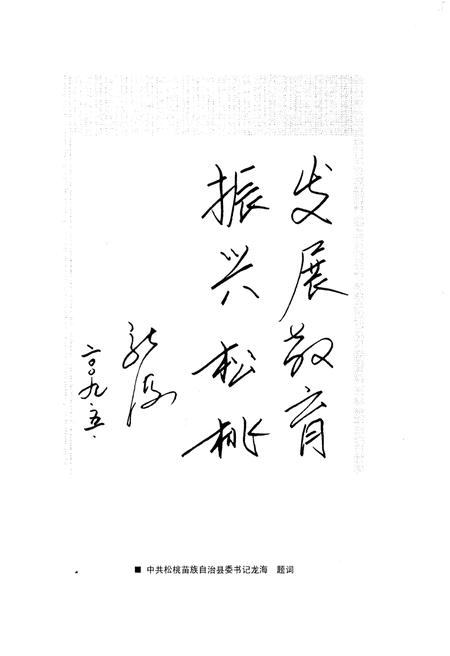 发展教育
振兴松桃
龙海
二〇〇九.五.
■ 中共松桃苗族自治县委书记龙海 题词